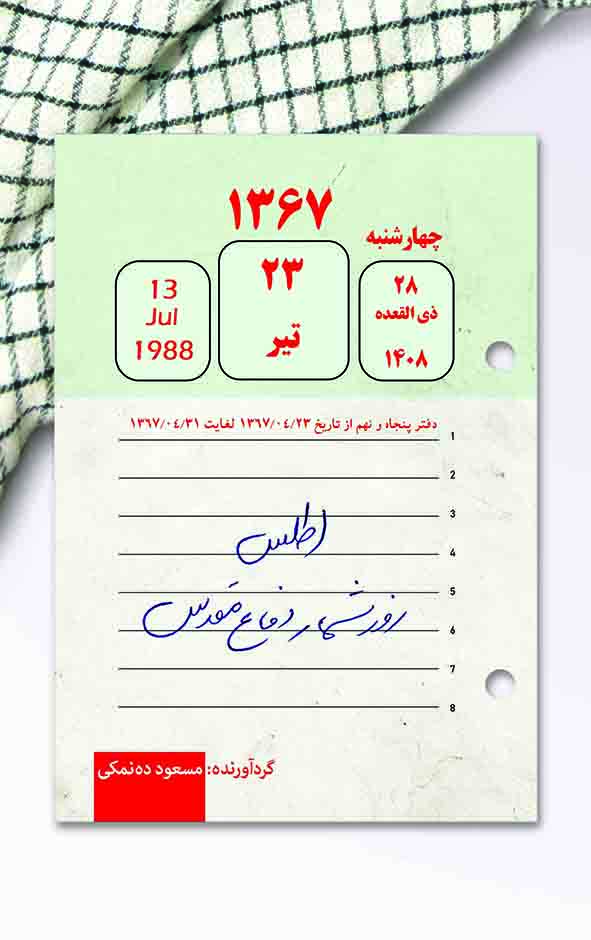 ۱۳۶۷
چهارشنبه
۲۸
ذی القعده
۱۴۰۸
۲۳
تیر
13
Jul
1988
دفتر پنجاه و نهم از تاریخ ۱۳۶۷/۰۴/۲۳ لغایت ۱۳۶۷/۰۴/۳۱
1
2
3
اطلس
4
5
روزشمار دفاع مقدس
6
7
8
گردآورنده: مسعود ده‌نمکی